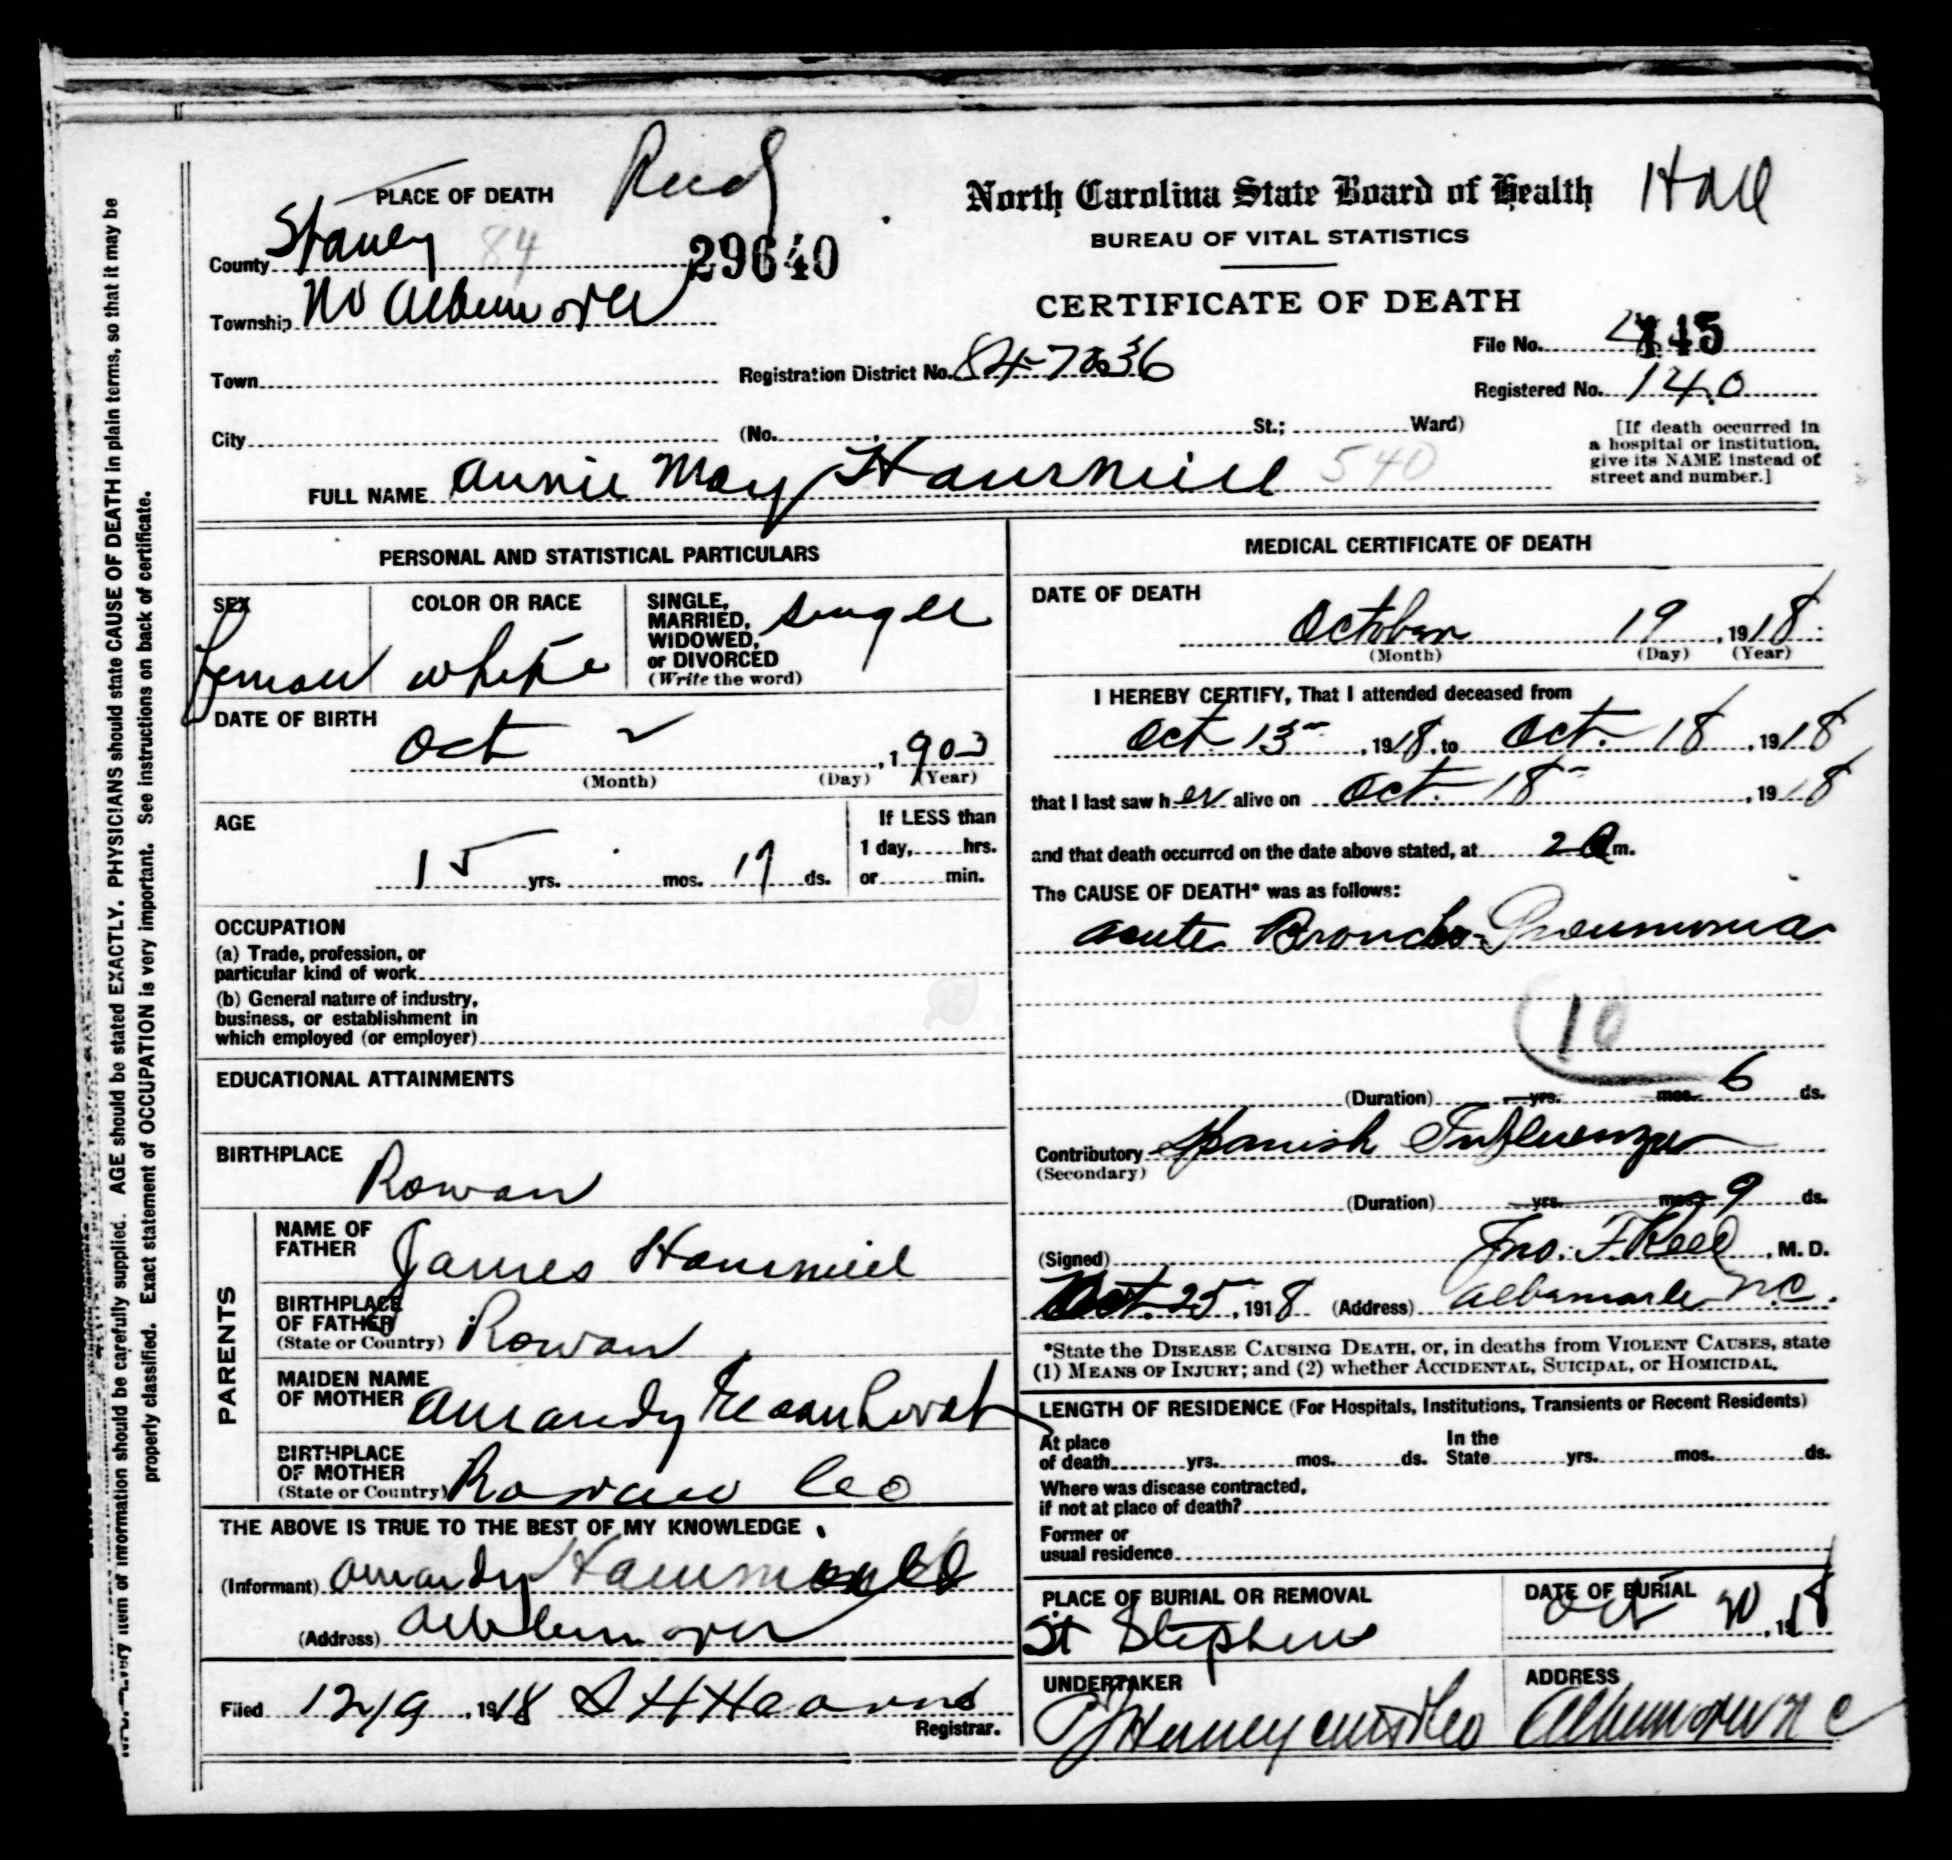 PLACE OF DEATH
Reed
North Carolina State Board of Health
Hall
BUREAU OF VITAL STATISTICS
CERTIFICATE OF DEATH
County Stanly 84
29640
Township No
Town
Registration District No. 84-7
File No. 145
Registered No. 140
City
(No. St.; Ward)
[If death occurred in
a hospital or institution,
give its NAME instead of
street and number.]
FULL NAME Annie May 540
PERSONAL AND STATISTICAL PARTICULARS
SEX
COLOR OR RACE
white
SINGLE,
MARRIED,
WIDOWED,
or DIVORCED
(Write the word)
single
DATE OF BIRTH
Oct 2, 1903
(Month) (Day) (Year)
AGE
15 yrs. mos. 17 ds.
If LESS than
1 day, hrs.
or min.
OCCUPATION
(a) Trade, profession, or
particular kind of work
(b) General nature of industry,
business, or establishment in
which employed (or employer)
EDUCATIONAL ATTAINMENTS
BIRTHPLACE
Rowan
PARENTS
NAME OF
FATHER James
BIRTHPLACE
OF FATHER
(State or Country) Rowan
MAIDEN NAME
OF MOTHER Amandy
BIRTHPLACE
OF MOTHER
(State or Country) Rowan Co
THE ABOVE IS TRUE TO THE BEST OF MY KNOWLEDGE
(Informant) Amandy
(Address)
Filed 12/9, 1918 S H Hearne
Registrar.
MEDICAL CERTIFICATE OF DEATH
DATE OF DEATH
October 19, 1918.
(Month) (Day) (Year)
I HEREBY CERTIFY, That I attended deceased from
Oct. 13, 1918, to Oct. 18, 1918
that I last saw her alive on Oct. 18, 1918
and that death occurred on the date above stated, at 2 a m.
The CAUSE OF DEATH* was as follows:
acute Broncho-Pneumonia
10
(Duration) yrs. mos. 6 ds.
Contributory Spanish Influenza
(Secondary)
(Duration) yrs. mos. 9 ds.
(Signed) Jno. F. , M. D.
Oct. 25, 1918 (Address) Albemarle N.C.
*State the DISEASE CAUSING DEATH, or, in deaths from VIOLENT CAUSES, state
(1) MEANS OF INJURY; and (2) whether ACCIDENTAL, SUICIDAL, or HOMICIDAL.
LENGTH OF RESIDENCE (For Hospitals, Institutions, Transients or Recent Residents)
At place
of death yrs. mos. ds. In the
State yrs. mos. ds.
Where was disease contracted,
if not at place of death?
Former or
usual residence
PLACE OF BURIAL OR REMOVAL
St Stephens
DATE OF BURIAL
Oct 20, 1918
UNDERTAKER
ADDRESS
N C
Every item of information should be carefully supplied. AGE should be stated EXACTLY. PHYSICIANS should state CAUSE OF DEATH in plain terms, so that it may be
properly classified. Exact statement of OCCUPATION is very important. See instructions on back of certificate.